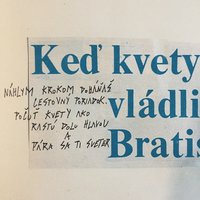 Keď kvety
vládli
Bratis
NÁHLYM KROKOM DOHÁŇAŠ
CESTOVNÝ PORIADOK.
POČUŤ KVETY AKO
RASTÚ DOLU HLAVOU
A
PÁRA SA TI SVETER